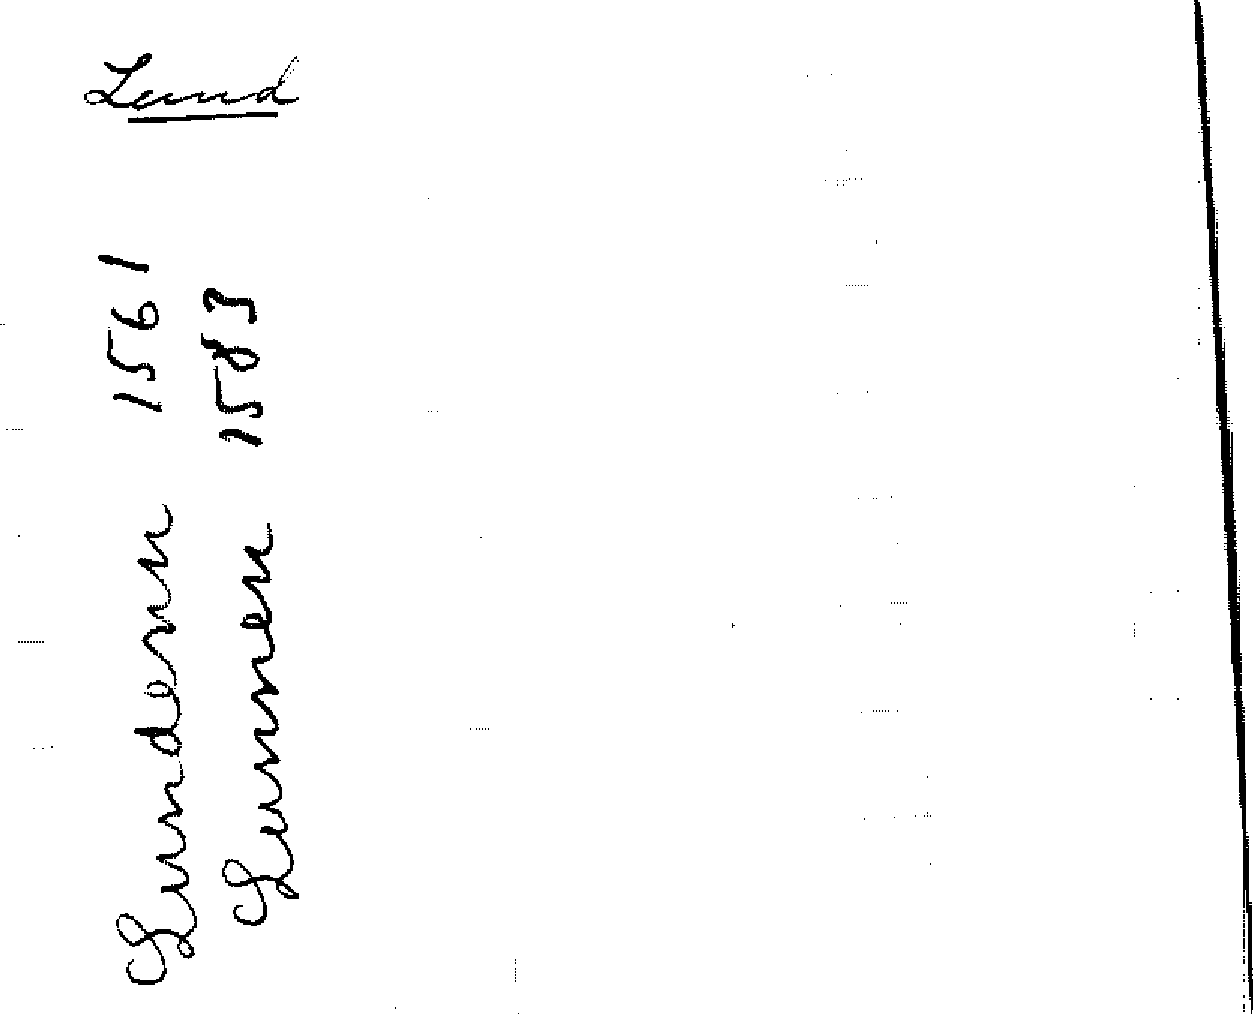 Lund
Lundenn 1561
Lunnen 1583